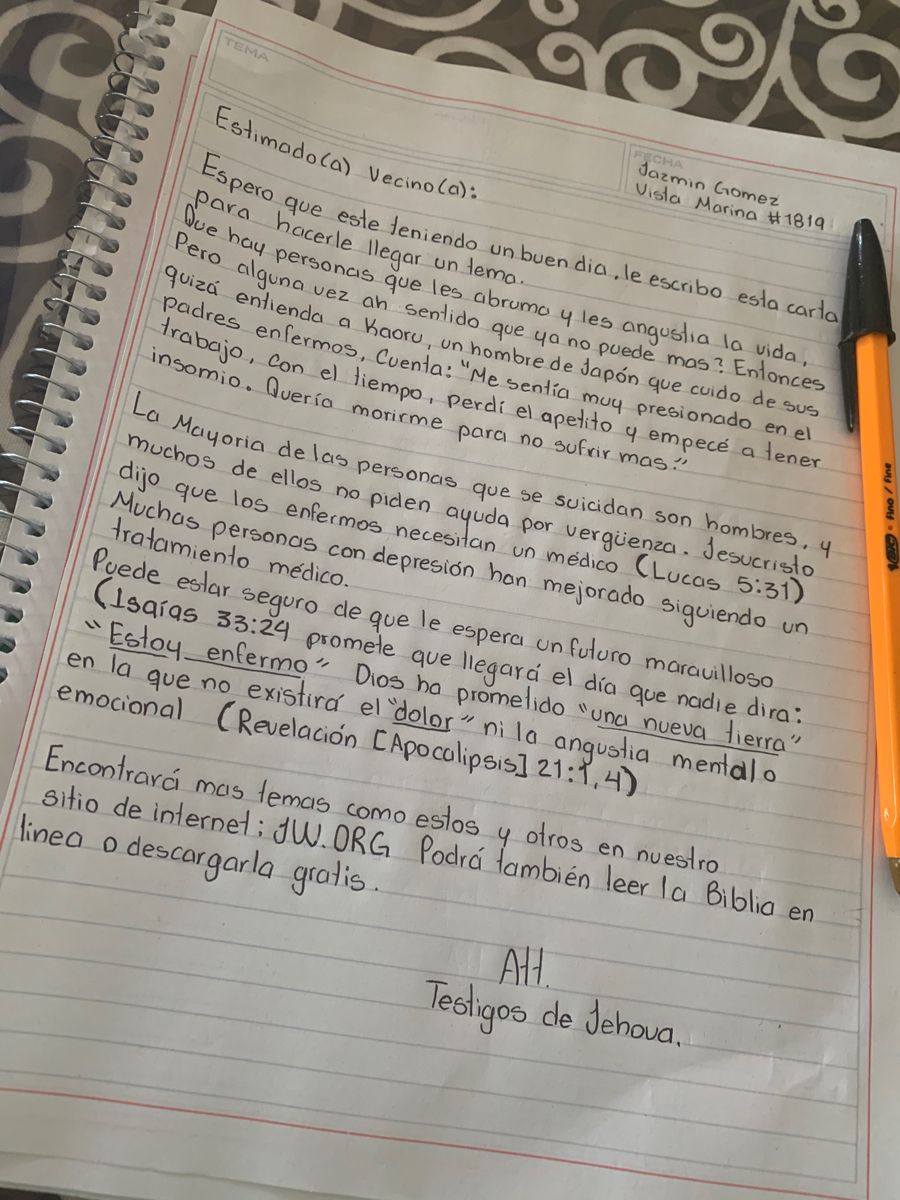 TEMA
FECHA
Jazmin Gomez
Vista Marina #1819
Estimado(a) Vecino(a):
Espero que este teniendo un buen dia, le escribo esta carta
para hacerle llegar un tema.
Que hay personas que les abruma y les angustia la vida,
Pero alguna vez ah sentido que ya no puede mas? Entonces
quizá entienda a Kaoru, un hombre de Japón que cuido de sus
padres enfermos, Cuenta: "Me sentía muy presionado en el
trabajo, con el tiempo, perdí el apetito y empecé a tener
insomio. Quería morirme para no sufrir mas."
La Mayoria de las personas que se suicidan son hombres, y
muchos de ellos no piden ayuda por vergüenza. Jesucristo
dijo que los enfermos necesitan un médico (Lucas 5:31)
Muchas personas con depresión han mejorado siguiendo un
tratamiento médico.
Puede estar seguro de que le espera un futuro maravilloso
(Isaías 33:24 promete que llegará el día que nadie dira:
"Estoy enfermo" Dios ha prometido "una nueva tierra"
en la que no existirá el "dolor" ni la angustia mental o
emocional (Revelación [Apocalipsis] 21:1,4)
Encontrará mas temas como estos y otros en nuestro
sitio de internet: JW.ORG Podrá también leer la Biblia en
linea o descargarla gratis.
Att.
Testigos de Jehova.
BIC fino / fine